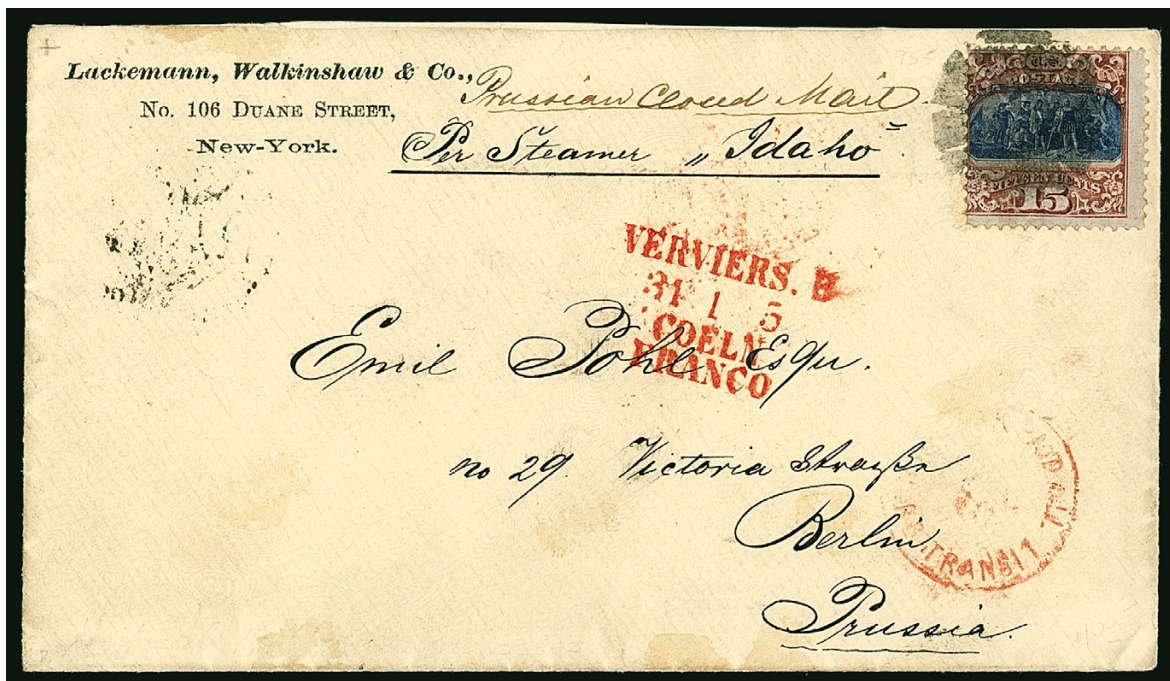 Lackemann, Walkinshaw & Co.,
No. 106 DUANE STREET,
New-York.
Prussian Closed Mail.
Per Steamer „Idaho"
U.S.
POSTAGE
FIFTEEN CENTS
15
VERVIERS.
31 1 5
COELN
FRANCO
Emil Pohl Esqu.
no 29 Victoria Straße
Berlin
Prussia.
PAID ALL
TRANSIT